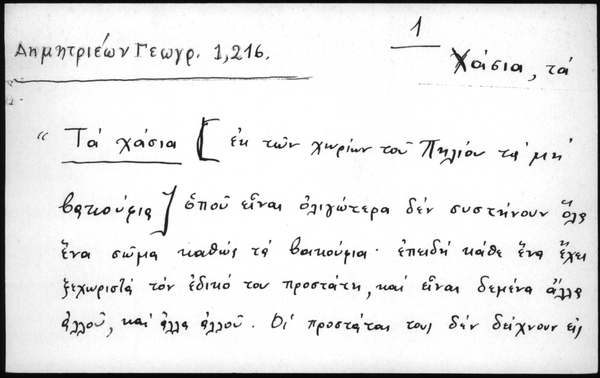 1
Δημητριέων Γεωγρ. 1,216.
Χάσια, τά
“ Τά χάσια [ἐκ τῶν χωρίων τοῦ Πηλίου τά μή
βακούφια] ὁποῦ εἶναι ὀλιγώτερα δέν συστήνουν ὅλα
ἕνα σῶμα καθώς τά βακούφια· ἐπειδή κάθε ἕνα ἔχει
ξεχωριστά τόν ἐδικό του προστάτη, καί εἶναι δεμένα ἄλλα
ἀλλοῦ, καί ἄλλα ἀλλοῦ. Οἱ προστάται τους δέν δείχνουν εἰς